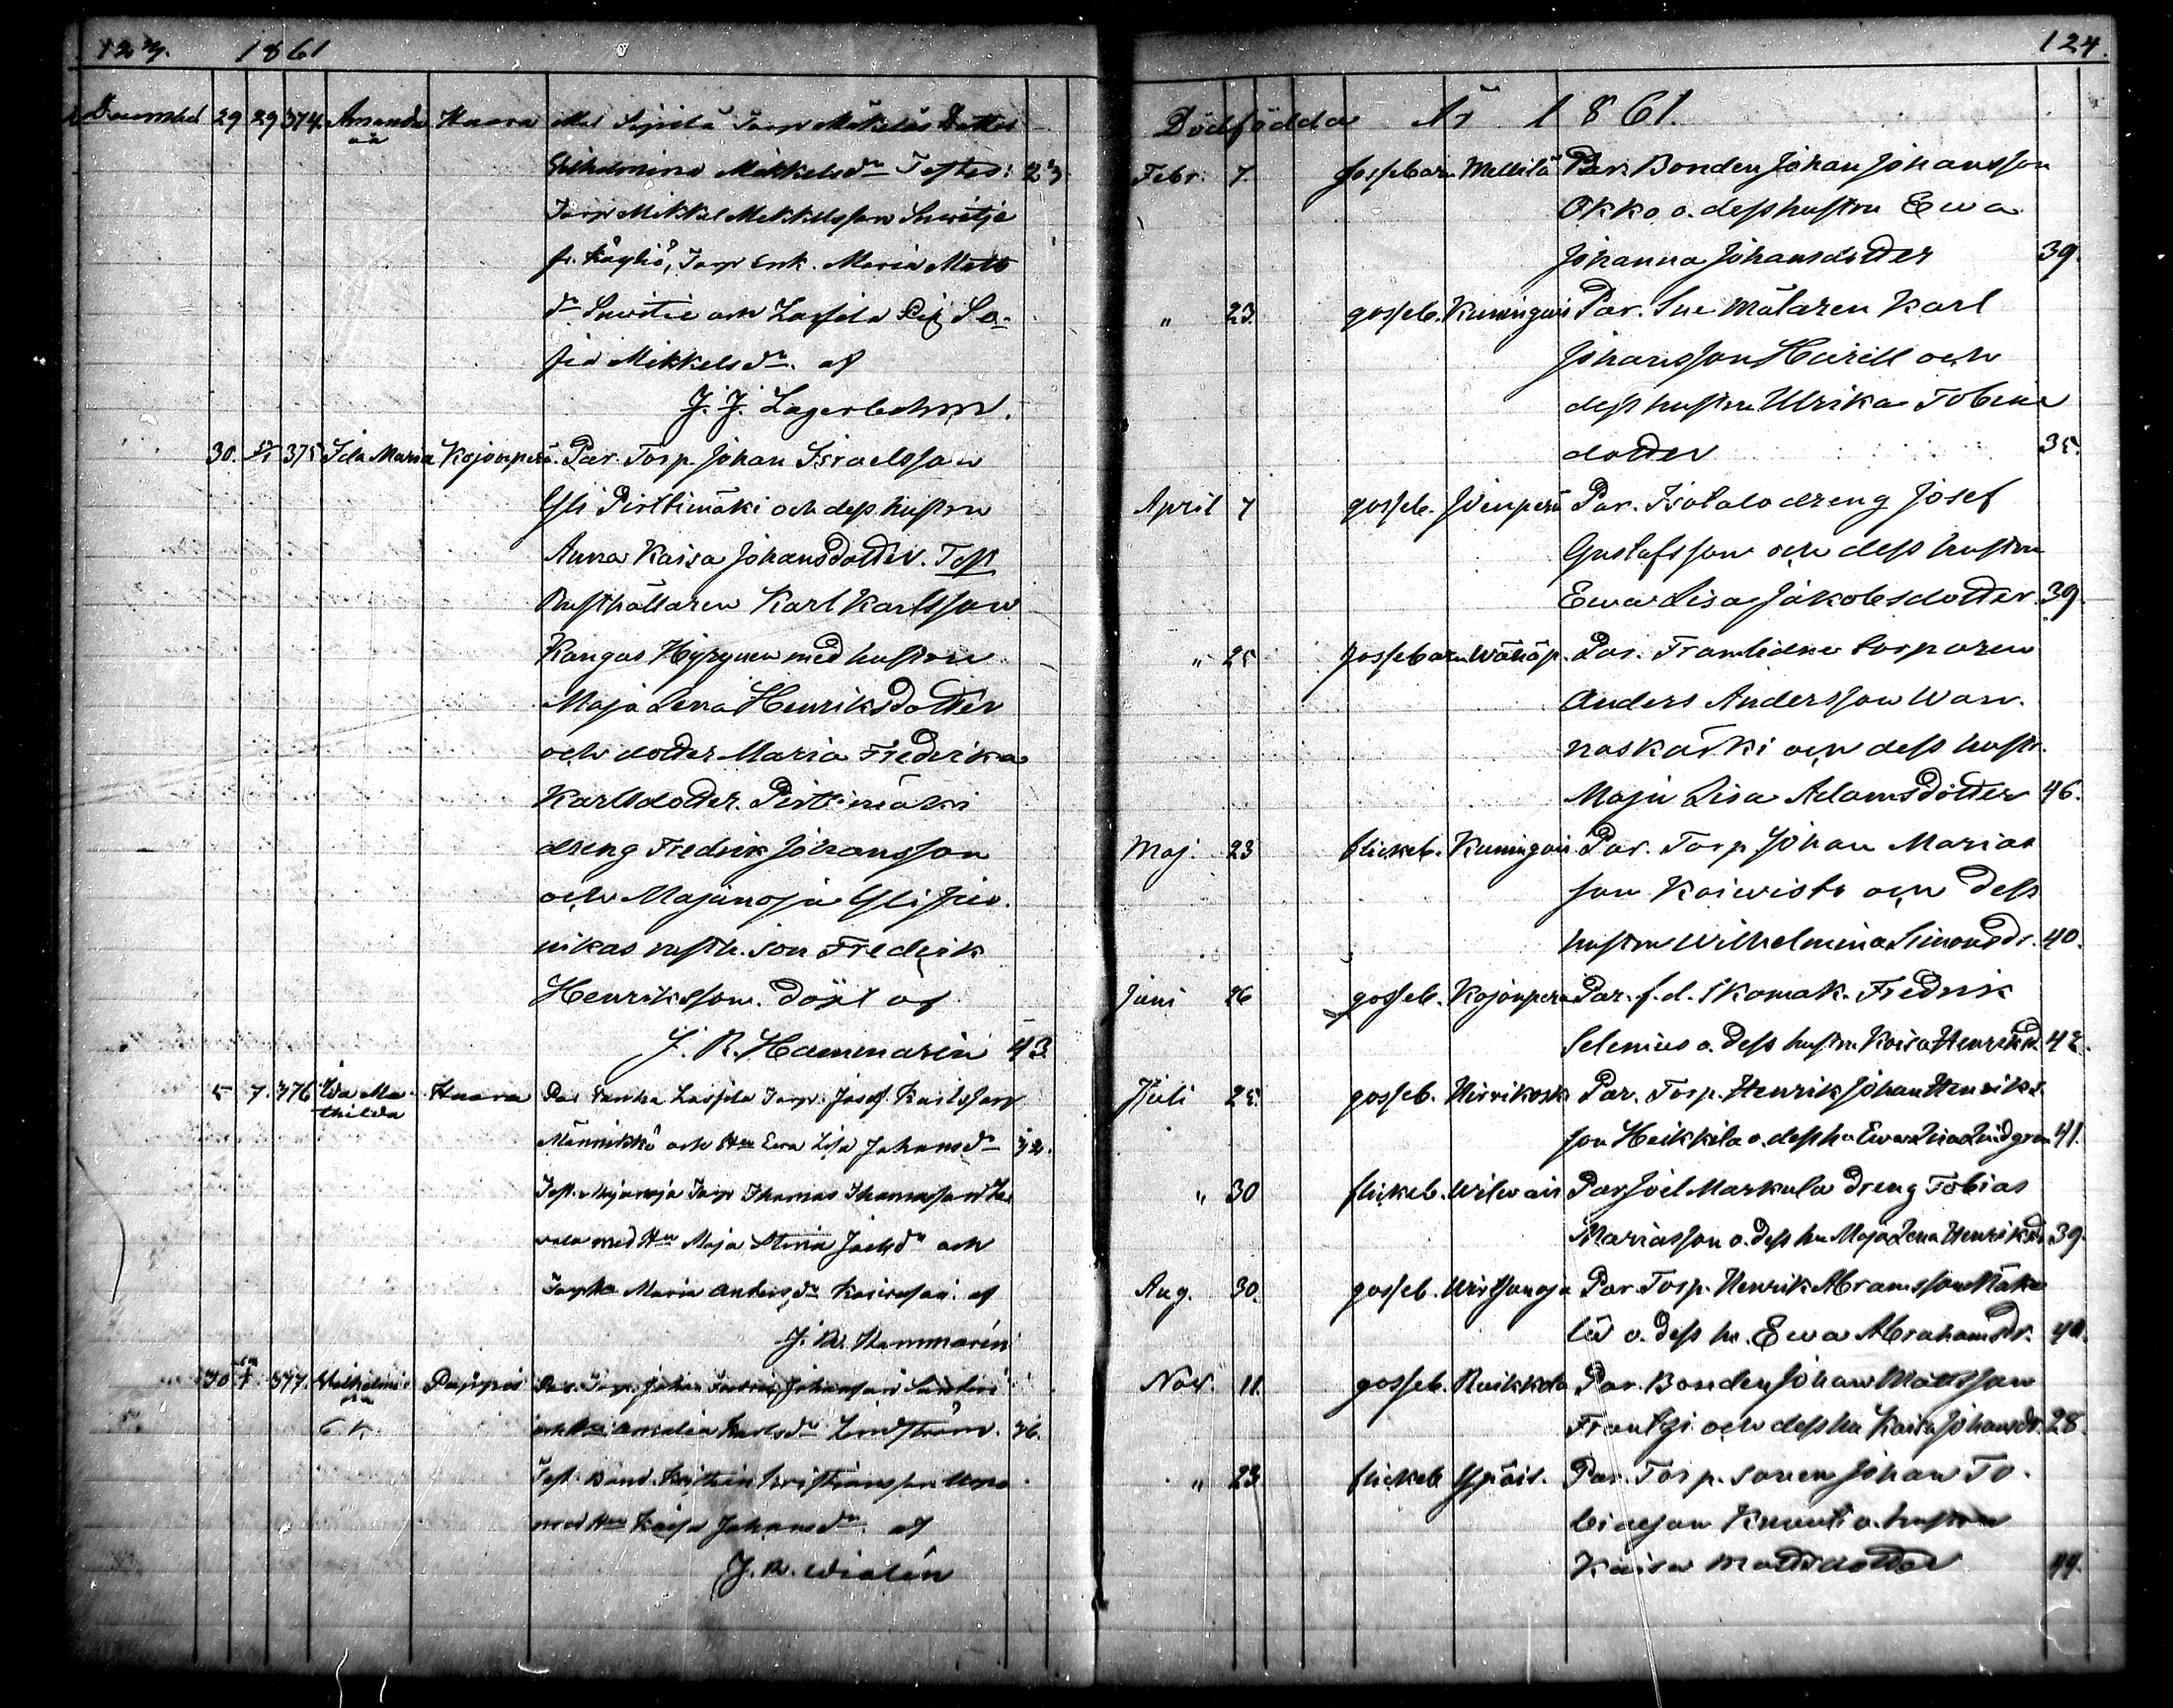 123. 1861
December 29 29 374. Amanda Haara Mod. Torp Mäkeläs Dotter
Wilhelmina Mikkelsdr Testes: 23
Torp Mikkel Mikkelsson
fr. Köyliö, Torp Enk. Maria Matts
dr och Lassila Pig So-
fia Mikkelsdr. af
J. J. Lagerbohm.
30. 375 Ida Maria Kojonperä. Par. Torp. Johan Israelsson
Yli Pirttimäki och dess hustru
Anna Kaisa Johansdotter. Test
Rusthållaren Karl Karlsson
Kangas Hyrynen med hustru
Maja Lena Henriksdotter
och dotter Maria Fredrika
Karlsdotter. Pirttimäki
dreng Fredrik Johansson
och Majanoja Yli
nikas rusth. son Fredrik
Henriksson. Döpt af
J. R. Hammarén 43
5 7. 376 Ida Ma- Haara Par Lassila Torp. Josef Karlsson
thilda
Männikkö och Hu Eva Lisa Johansdr 32.
Test. Myanoja Torp Thomas Thomasson
med Hu Maja Stina Jacksdr och
Maria Andersdr af
J. R. Hammarén
30 377. Wilhelmi- Par. Torp. Johan Johansson
na
Amalia Karlsdr Lindström. 36.
Test. Bond. Kristian Kristiansson
med Hu Kaisa Johansdr. af
J. R. Wialén
124.
Dödfödda År 1861.
Febr. 7. gossebarn Mellilä Par. Bonden Johan Johansson
Okko o. dess hustru Ewa
Johanna Johansdotter 39.
" 23. gosseb. Kuningois Par. Sne Målaren Karl
Johansson Hurell och
dess hustru Ulrika Tobias
dotter 35.
April 7 gosseb. Isotalo dreng Josef
Gustafsson och dess hustru
Ewa Lisa Jakobsdotter. 39.
" 25 gossebarn Par. Framlidne torparen
Anders Andersson Wan-
haskartki och dess hustr.
Maja Lisa Adamsdotter 46.
Maj. 23 flickeb. Kuningois Par. Torp Johan Marias
son Koiwisto och dess
hustru Wilhelmina Simonsdr. 40.
Juni 26 gosseb. Kojonperä Par. f. d. Skomak. Fredrik
Selenius o. dess hustru Kaisa Henriksd. 42.
Juli 25. gosseb. Hirvikoski Par. Torp. Henrik Johan Henriks-
son Heikkilä o. dess hu Ewa Lisa Lindgren 41.
" 30 flickeb. Wilwais Par Joel Markula dreng Tobias
Mariasson o. dess hu Maja Lena Henriksd. 39.
Aug. 30. gosseb. Wirtsanoja Par. Torp. Henrik Abramsson Mäke-
lä o. dess hu. Ewa Abrahamsdr. 40.
Nov. 11. gosseb. Raikkola Par. Bonden Johan Mattsson
Frantsi och dess hu Kaisa Johansdr. 28.
" 23. flickeb. Ypäis. Par. Torp. sonen Johan To-
biasson Knuuti o. hustru
Kaisa Mattsdotter 44.